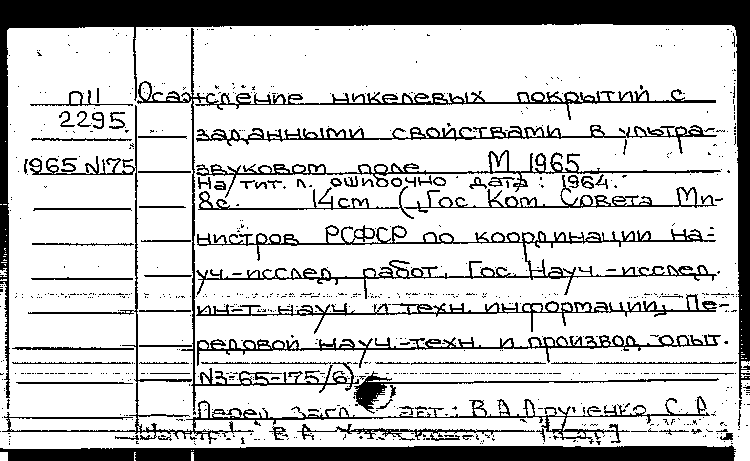 П11 Осаждение никелевых покрытий с
2295 заданными свойствами в ультра-
1965 N175 звуковом поле. М 1965
На тит. л. ошибочно дата: 1964.
8с. 14см (Гос. Ком. Совета Ми-
нистров РСФСР по координации на-
уч.-исслед. работ. Гос. Науч.-исслед.
ин-т. науч. и техн. информации, Пе-
редовой науч.-техн. и производ. опыт.
N3-65-175/6)
Перед загл. авт.: В.А. С.А.
В.А.